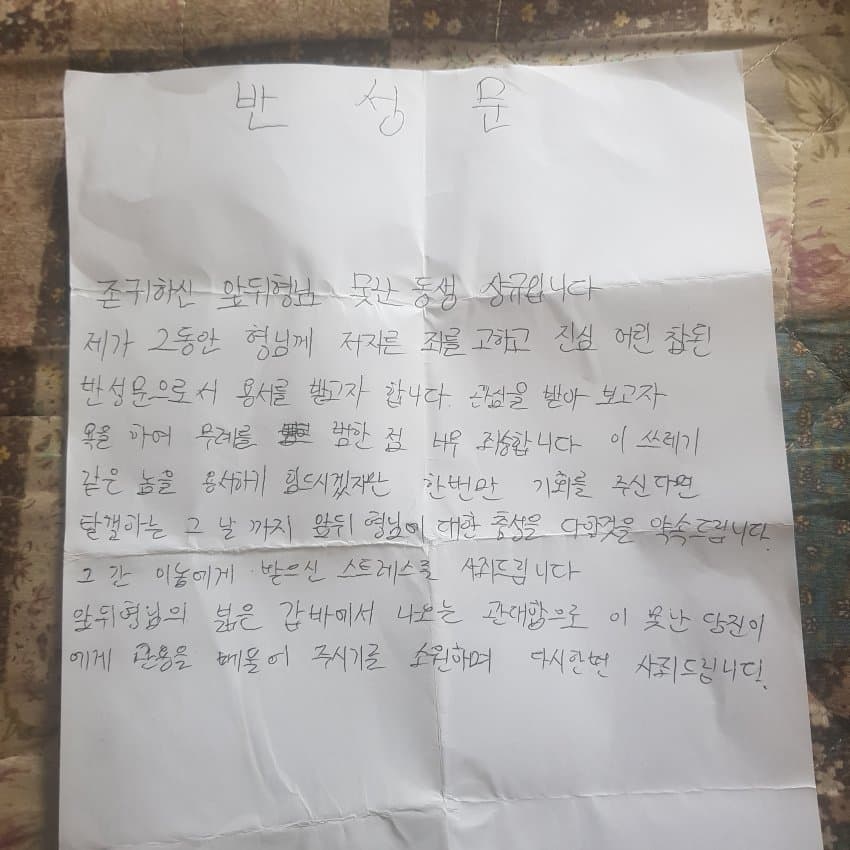 반 성 문
존귀하신 앞뒤형님 못난 동생 상규입니다
제가 그동안 형님께 저지른 죄를 고하고 진심 어린 참된
반성문으로서 용서를 받고자 합니다. 관심을 받아 보고자
욕을 하여 무례를 범한 점 너무 죄송합니다 이 쓰레기
같은 놈을 용서하기 힘드시겠지만 한번만 기회를 주신다면
탈갤하는 그 날 까지 앞뒤 형님에 대한 충성을 다할것을 약속드립니다.
그 간 이놈에게 받으신 스트레스를 사죄드립니다
앞뒤형님의 넓은 갑바에서 나오는 관대함으로 이 못난 당진이
에게 관용을 베풀어 주시기를 소원하며 다시한번 사죄드립니다.